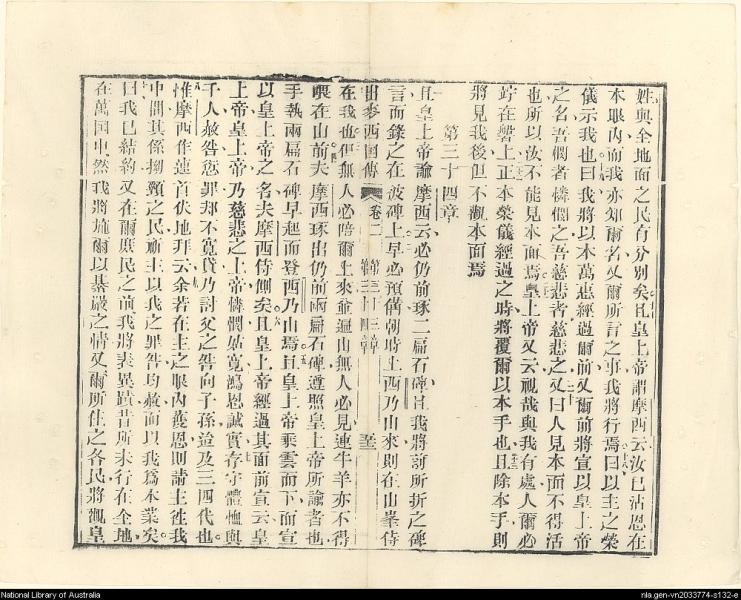 姓與全地面之民有分別矣且皇上帝謂摩西云汝已沾恩在
本眼內而我亦知爾名又爾所言之事我將行焉曰以主之榮
儀示我也曰我將以本萬惠經過爾前又爾前將宣以皇上帝
之名吾憫者憐憫之吾慈悲者慈悲之又曰人見本面不得活
也所以汝不能見本面焉皇上帝又云視哉與我有處人爾必
竚在磐上正本榮儀經過之時將覆爾以本手也且除本手則
將見我後但不觀本面焉
第三十四章
且皇上帝諭摩西云必仍前琢二扁石碑且我將前所折之碑
言而錄之在彼碑上早必預備朝時上西乃山來則在山峯侍
出麥西國傳 卷二 第三十三章 第三十四章
在我也但無人必陪爾上來並遍山無人必見連牛羊亦不得
喂在山前夫摩西琢出仍前兩扁石碑遵照皇上帝所諭者也
手執兩扁石碑早起而登西乃山焉且皇上帝乘雲而下而宣
以皇上帝之名夫摩西侍側矣且皇上帝經過其面前宣云皇
上帝皇上帝乃慈悲之上帝憐憫寬鴻恩誠實存守體恤與
千人赦咎愆罪却不寬貸乃討父之咎向子孫追及三四代也
惟摩西作速首伏地拜云余若在主之眼內獲恩則請主徃我
中間其係拗頸之民祈主以我之罪咎均赦而以我爲本業矣
曰我已結約又在爾庶民之前我將表異蹟昔所未行在全地
在萬國中然我將施爾以綦嚴之情又爾所住之各民將觀皇
National Library of Australia
nla.gen-vn2033774-s132-e